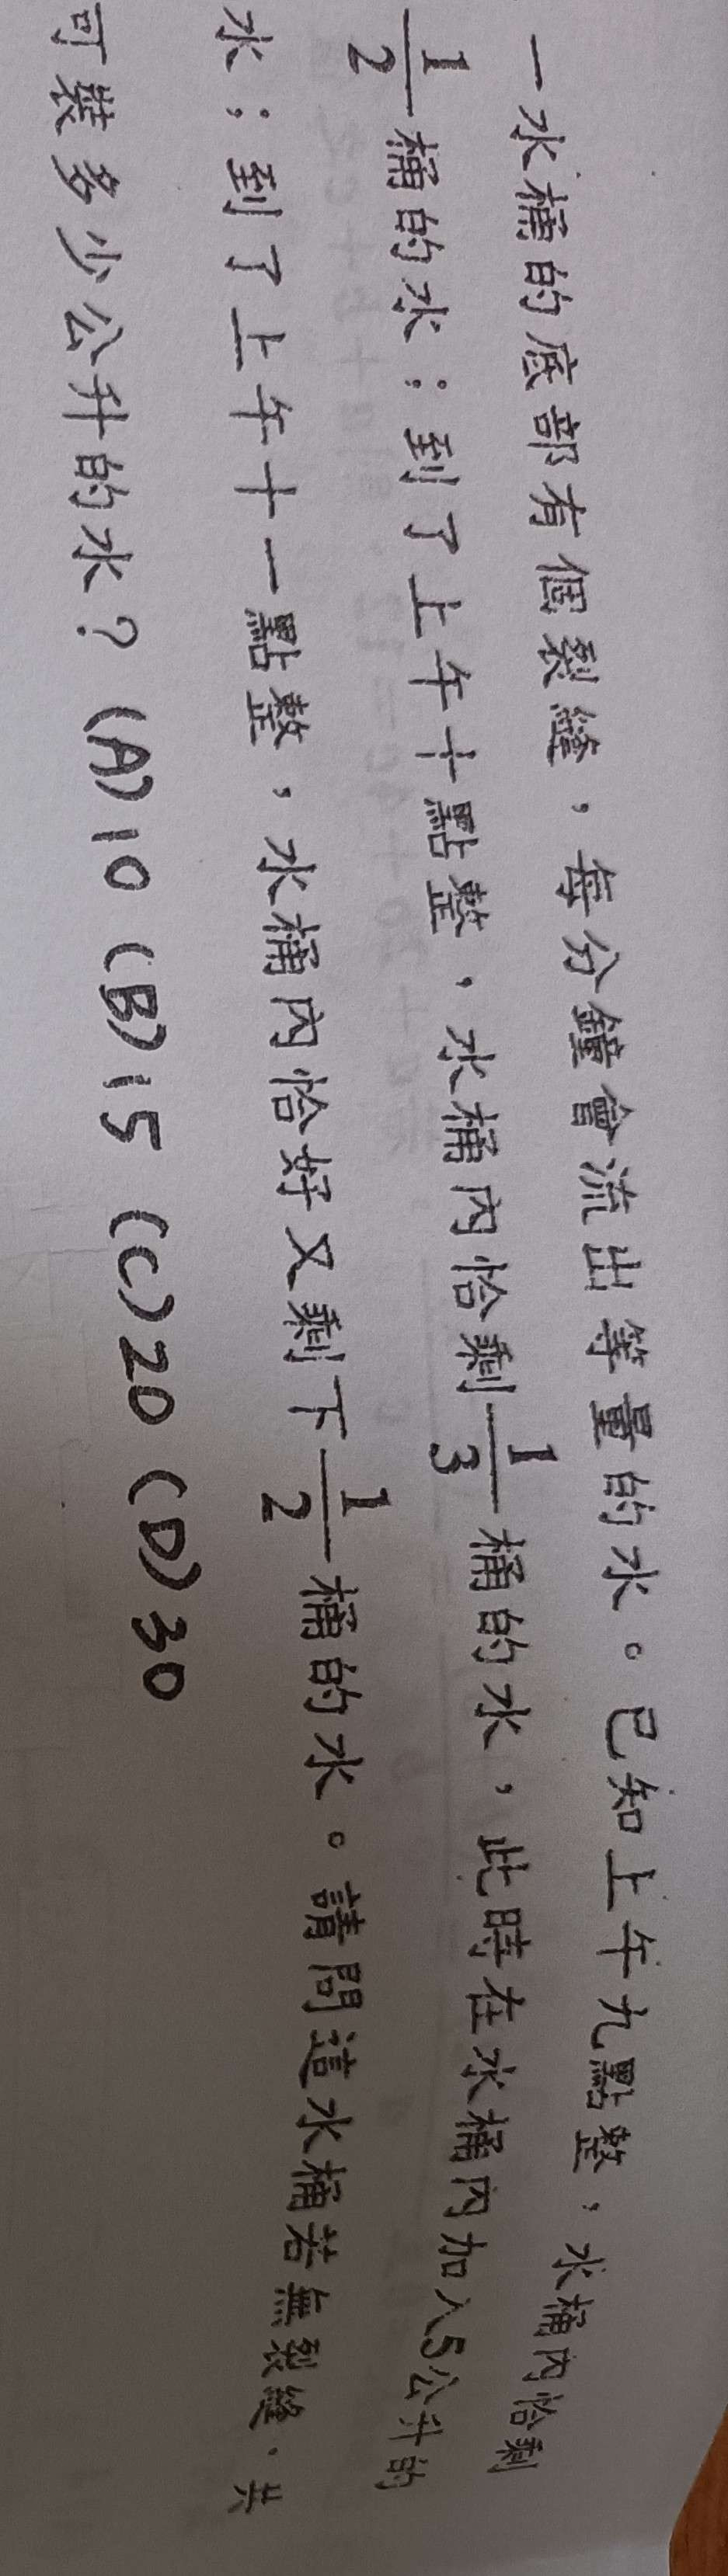 一水桶的底部有個裂縫，每分鐘會流出等量的水。已知上午九點整，水桶內恰剩
1/2桶的水；到了上午十點整，水桶內恰剩1/3桶的水，此時在水桶內加入5公升的
水；到了上午十一點整，水桶內恰好又剩下1/2桶的水。請問這水桶若無裂縫，共
可裝多少公升的水？(A)10 (B)15 (C)20 (D)30